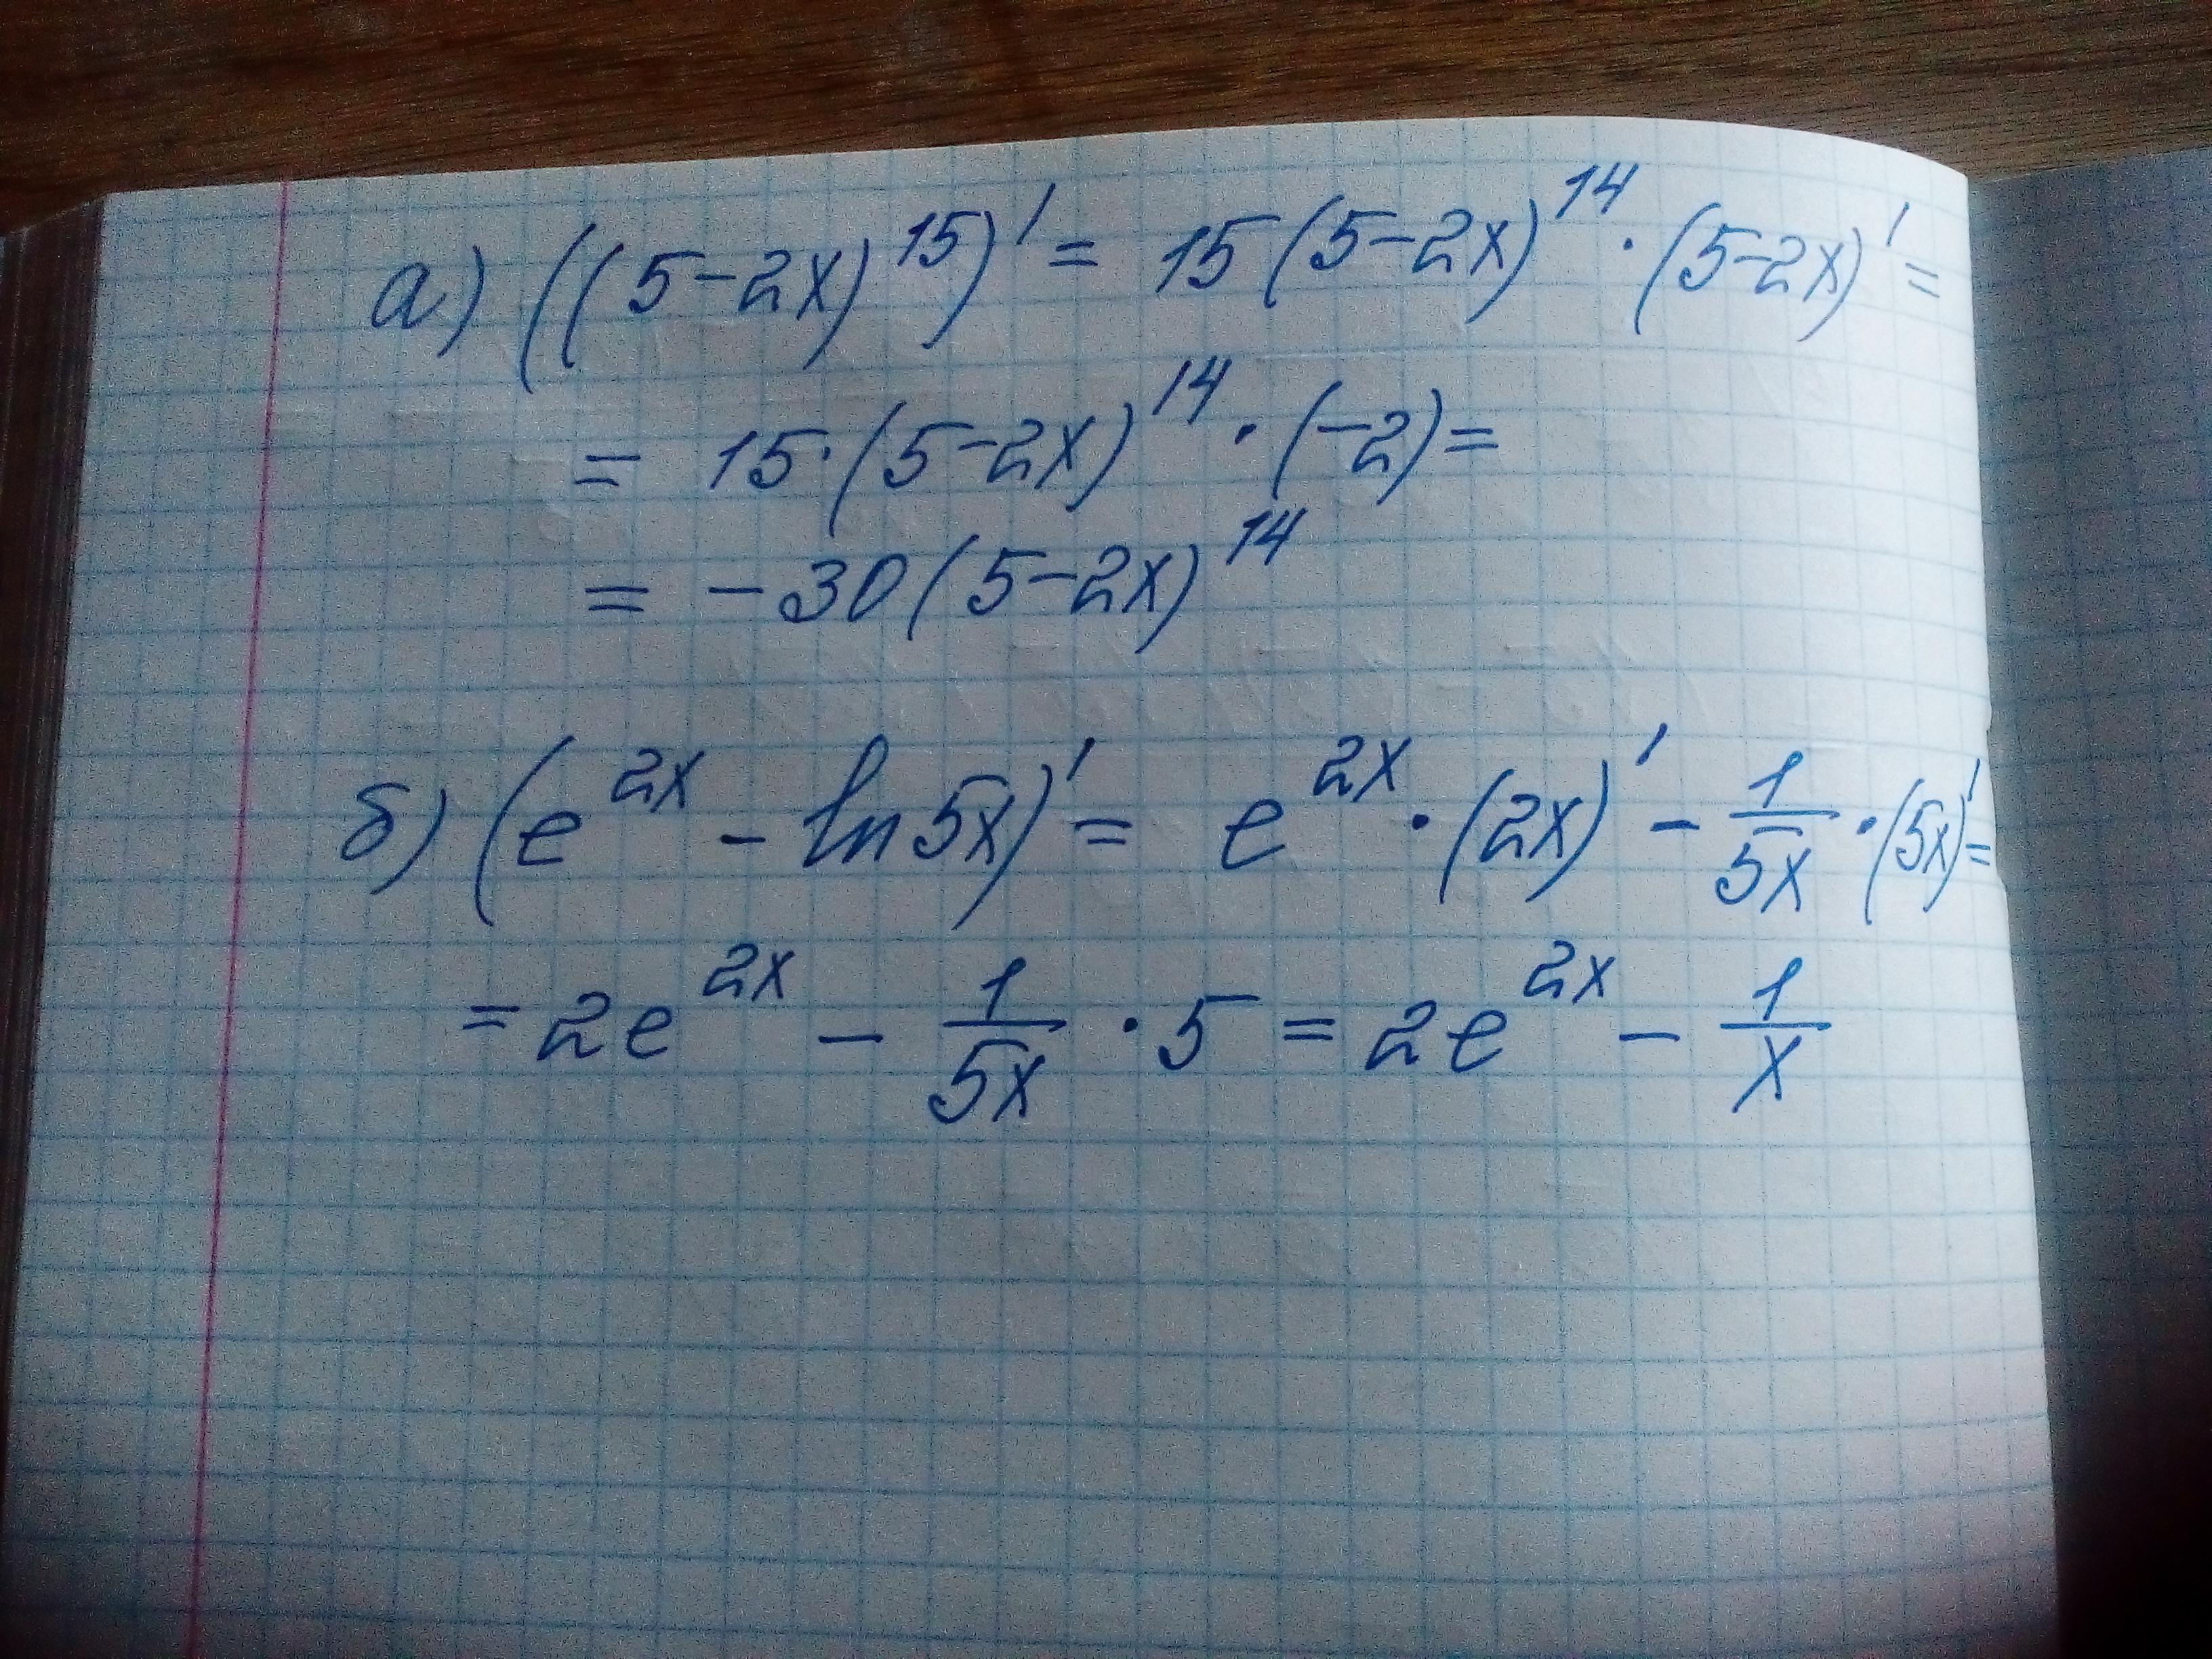 а) ((5-2x)^15)' = 15(5-2x)^14 · (5-2x)' =
= 15·(5-2x)^14 · (-2) =
= -30(5-2x)^14
б) (e^2x - ln5x)' = e^2x · (2x)' - 1/5x · (5x)' =
= 2e^2x - 1/5x · 5 = 2e^2x - 1/x